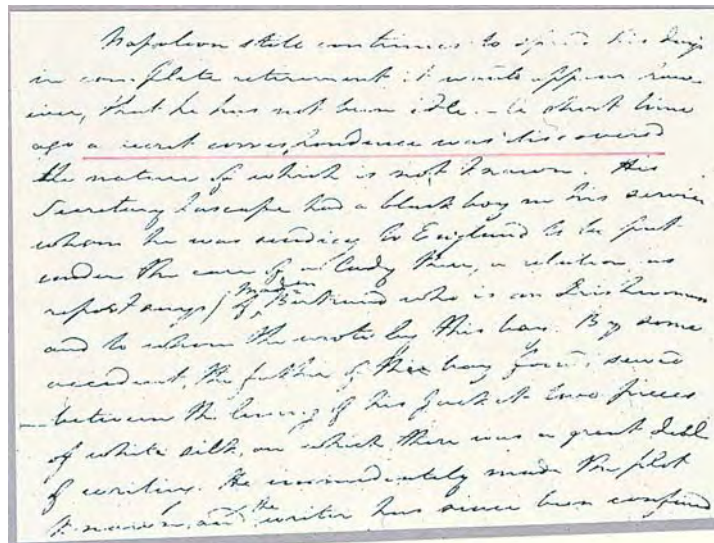 Napoleon still continues to spend his days
in complete retirement. it would appear how-
ever, that he has not been idle. - a short time
ago a secret correspondence was discovered
the nature of which is not known. His
Secretary Lascape had a black boy in his service
whom he was sending to England to be put
under the care of a lady there, a relation as
report says, of Madm Bertrand who is an Irishwoman
and to whom she wrote by this boy. By some
accident, the father of this boy found sewed
between the lining of his jacket two pieces
of white silk, on which there was a great deal
of writing. He immediately made the plot
known, and the writer has since been confined